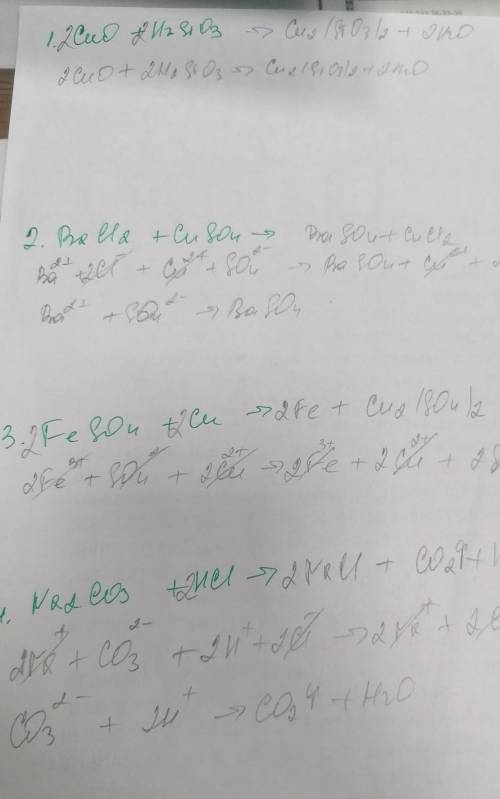 1. 2CuO + 2H2SiO3 → Cu2(SiO3)2 + 2H2O
2CuO + 2H2SiO3 → Cu2(SiO3)2 + 2H2O
2. BaCl2 + CuSO4 → BaSO4 + CuCl2
Ba2+ + 2Cl- + Cu2+ + SO4 2- → BaSO4 + Cu2+ + 2
Ba2+ + SO4 2- → BaSO4
3. 2FeSO4 + 2Cu → 2Fe + Cu2(SO4)2
2Fe3+ + SO4 + 2Cu2+ → 2Fe3+ + 2Cu2+ + 2S
Na2CO3 + 2HCl → 2NaCl + CO2↑ + H
2Na+ + CO3 2- + 2H+ + 2Cl- → 2Na+ + 2C
CO3 2- + 2H+ → CO2↑ + H2O